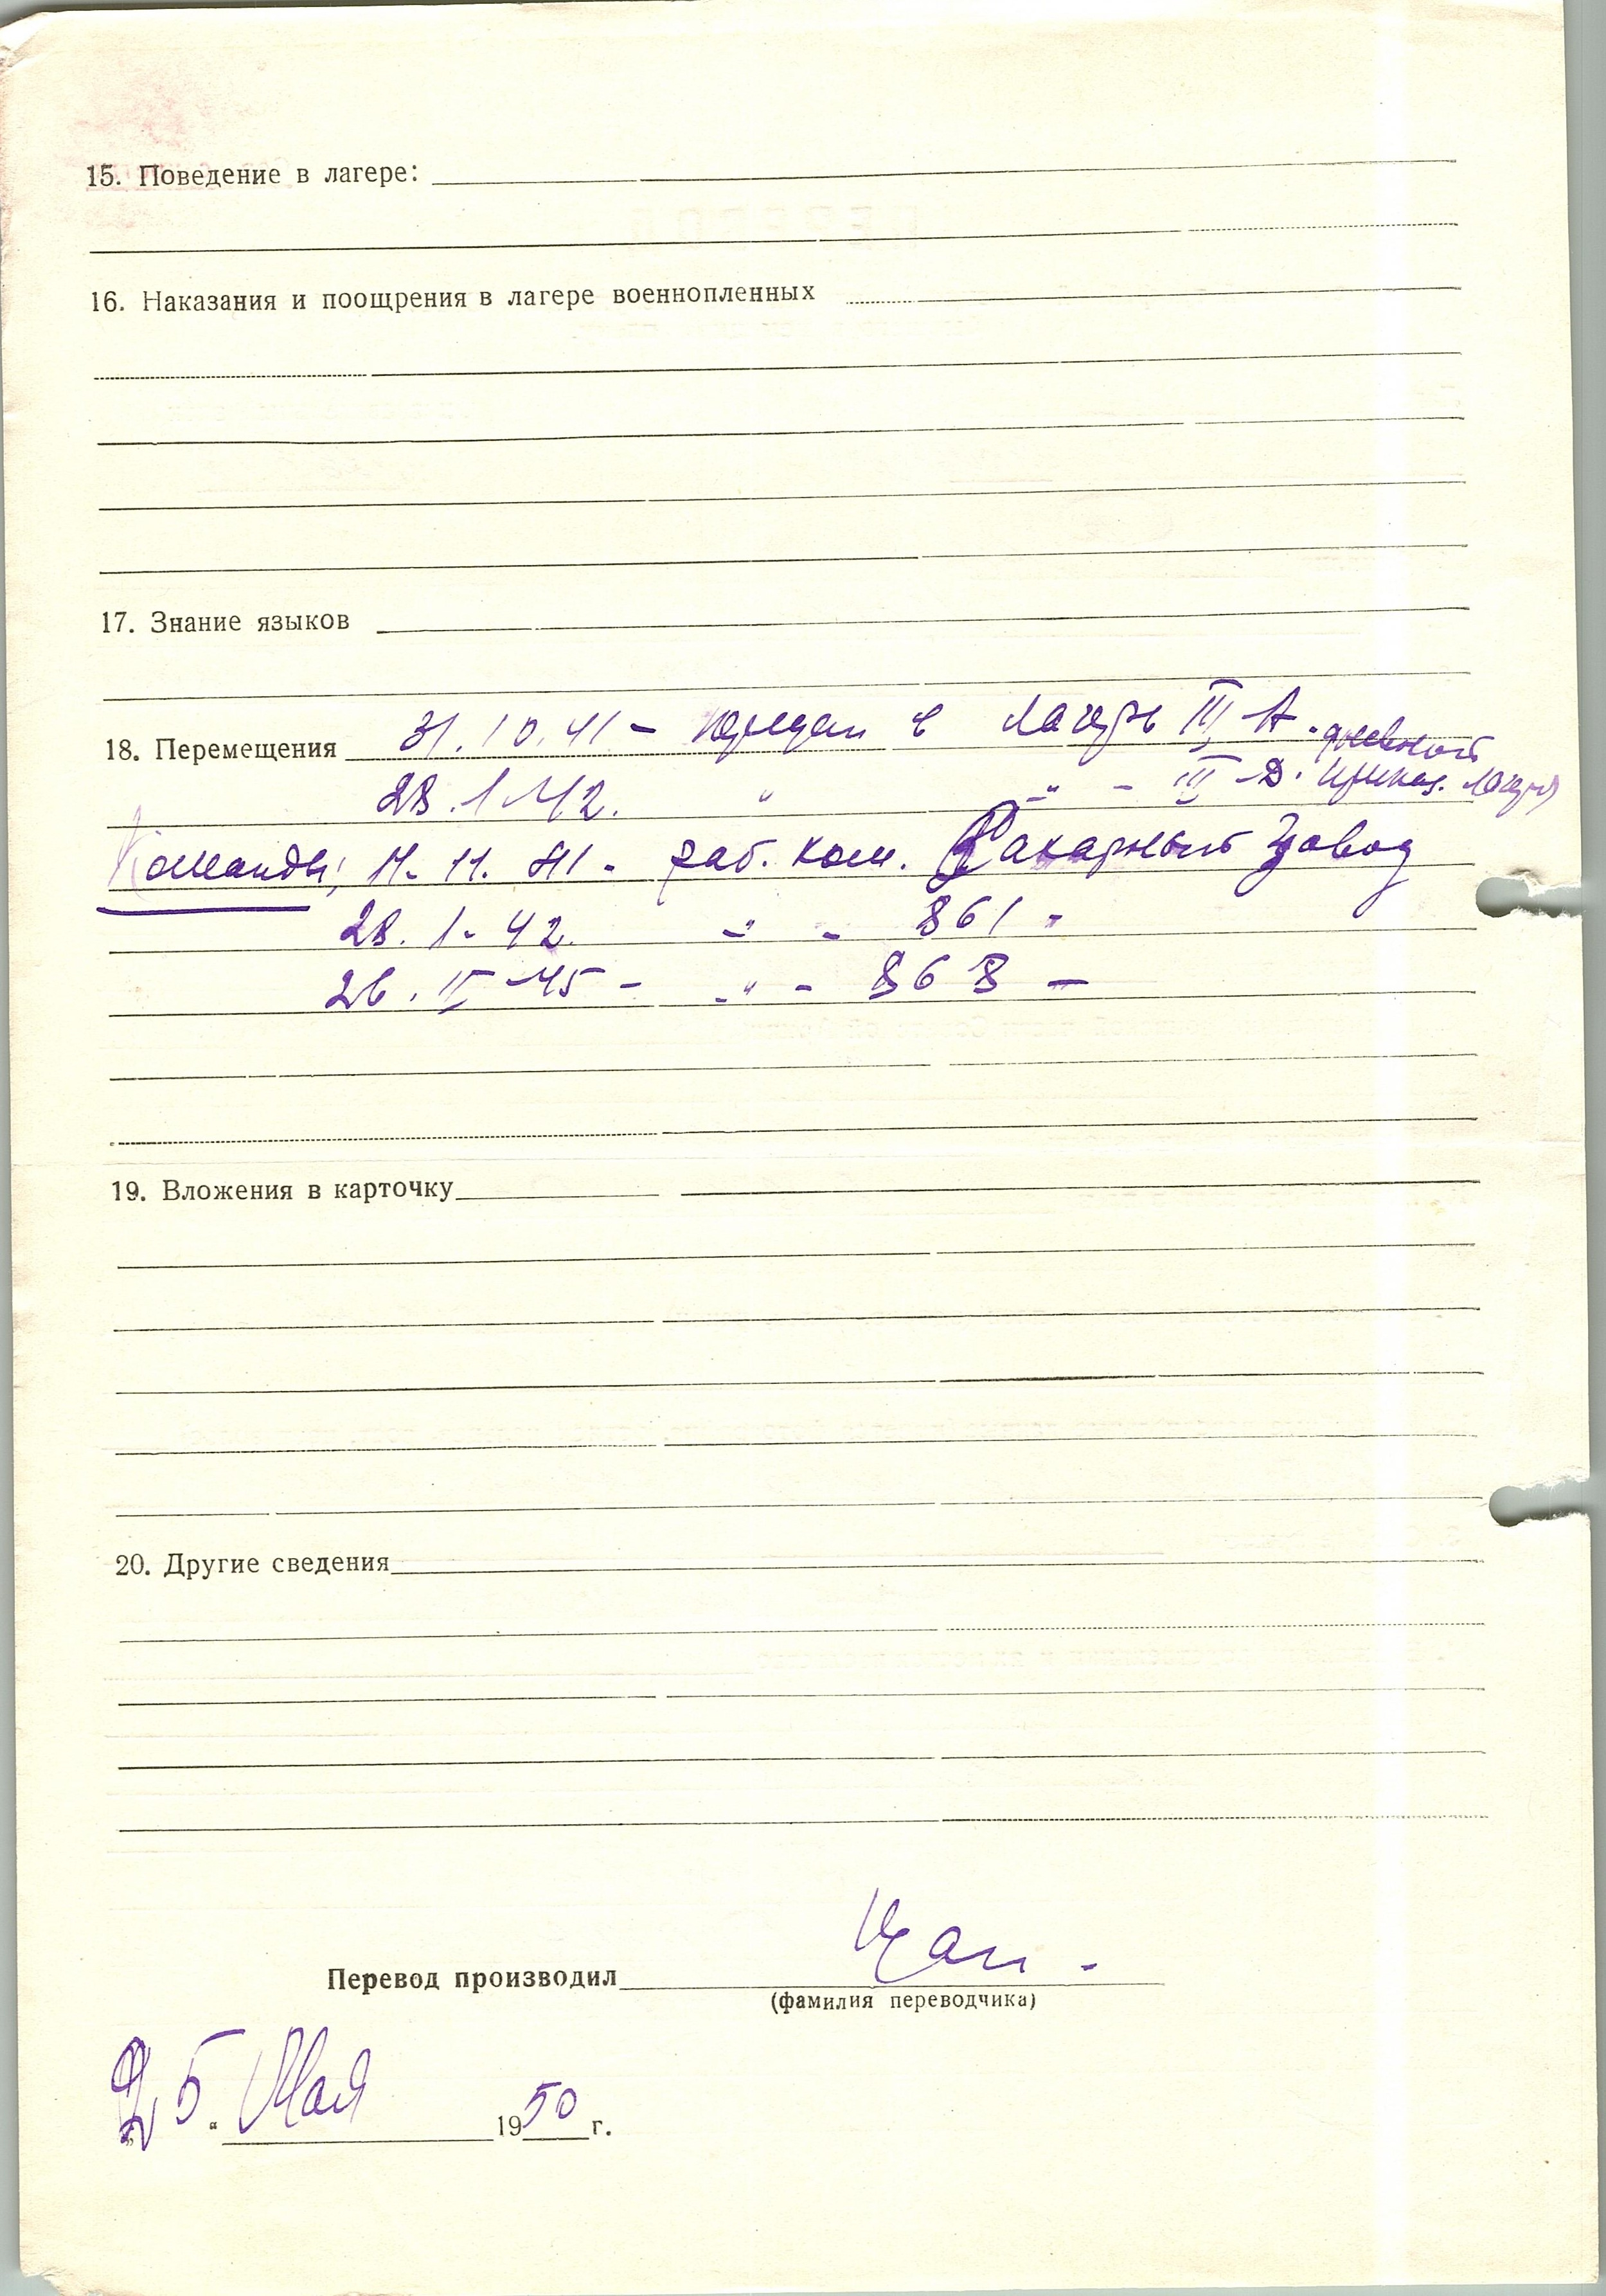 15. Поведение в лагере:
16. Наказания и поощрения в лагере военнопленных
17. Знание языков
18. Перемещения 31.10.41 – передан в лагерь III A.
28.1.42. " -"- III Д.
Команды: 11.41 - раб. ком. Сахарный завод
28.1.42. -"- 861 -
26.II-45 - -"- 868 -
19. Вложения в карточку
20. Другие сведения
Перевод производил
(фамилия переводчика)
25. Мая 1950 г.